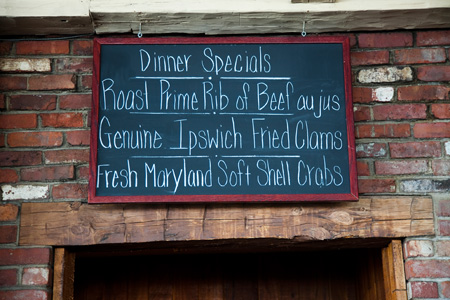 Dinner Specials
Roast Prime Rib of Beef au jus
Genuine Ipswich Fried Clams
Fresh Maryland Soft Shell Crabs